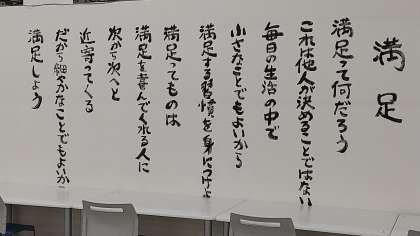 満足
満足って何だろう
これは他人が決めることではない
毎日の生活の中で
小さなことでもよいから
満足する習慣を身につけよ
満足ってものは
満足を喜んでくれる人に
次から次へと
近寄ってくる
だから細やかなことでもよいから
満足しよう